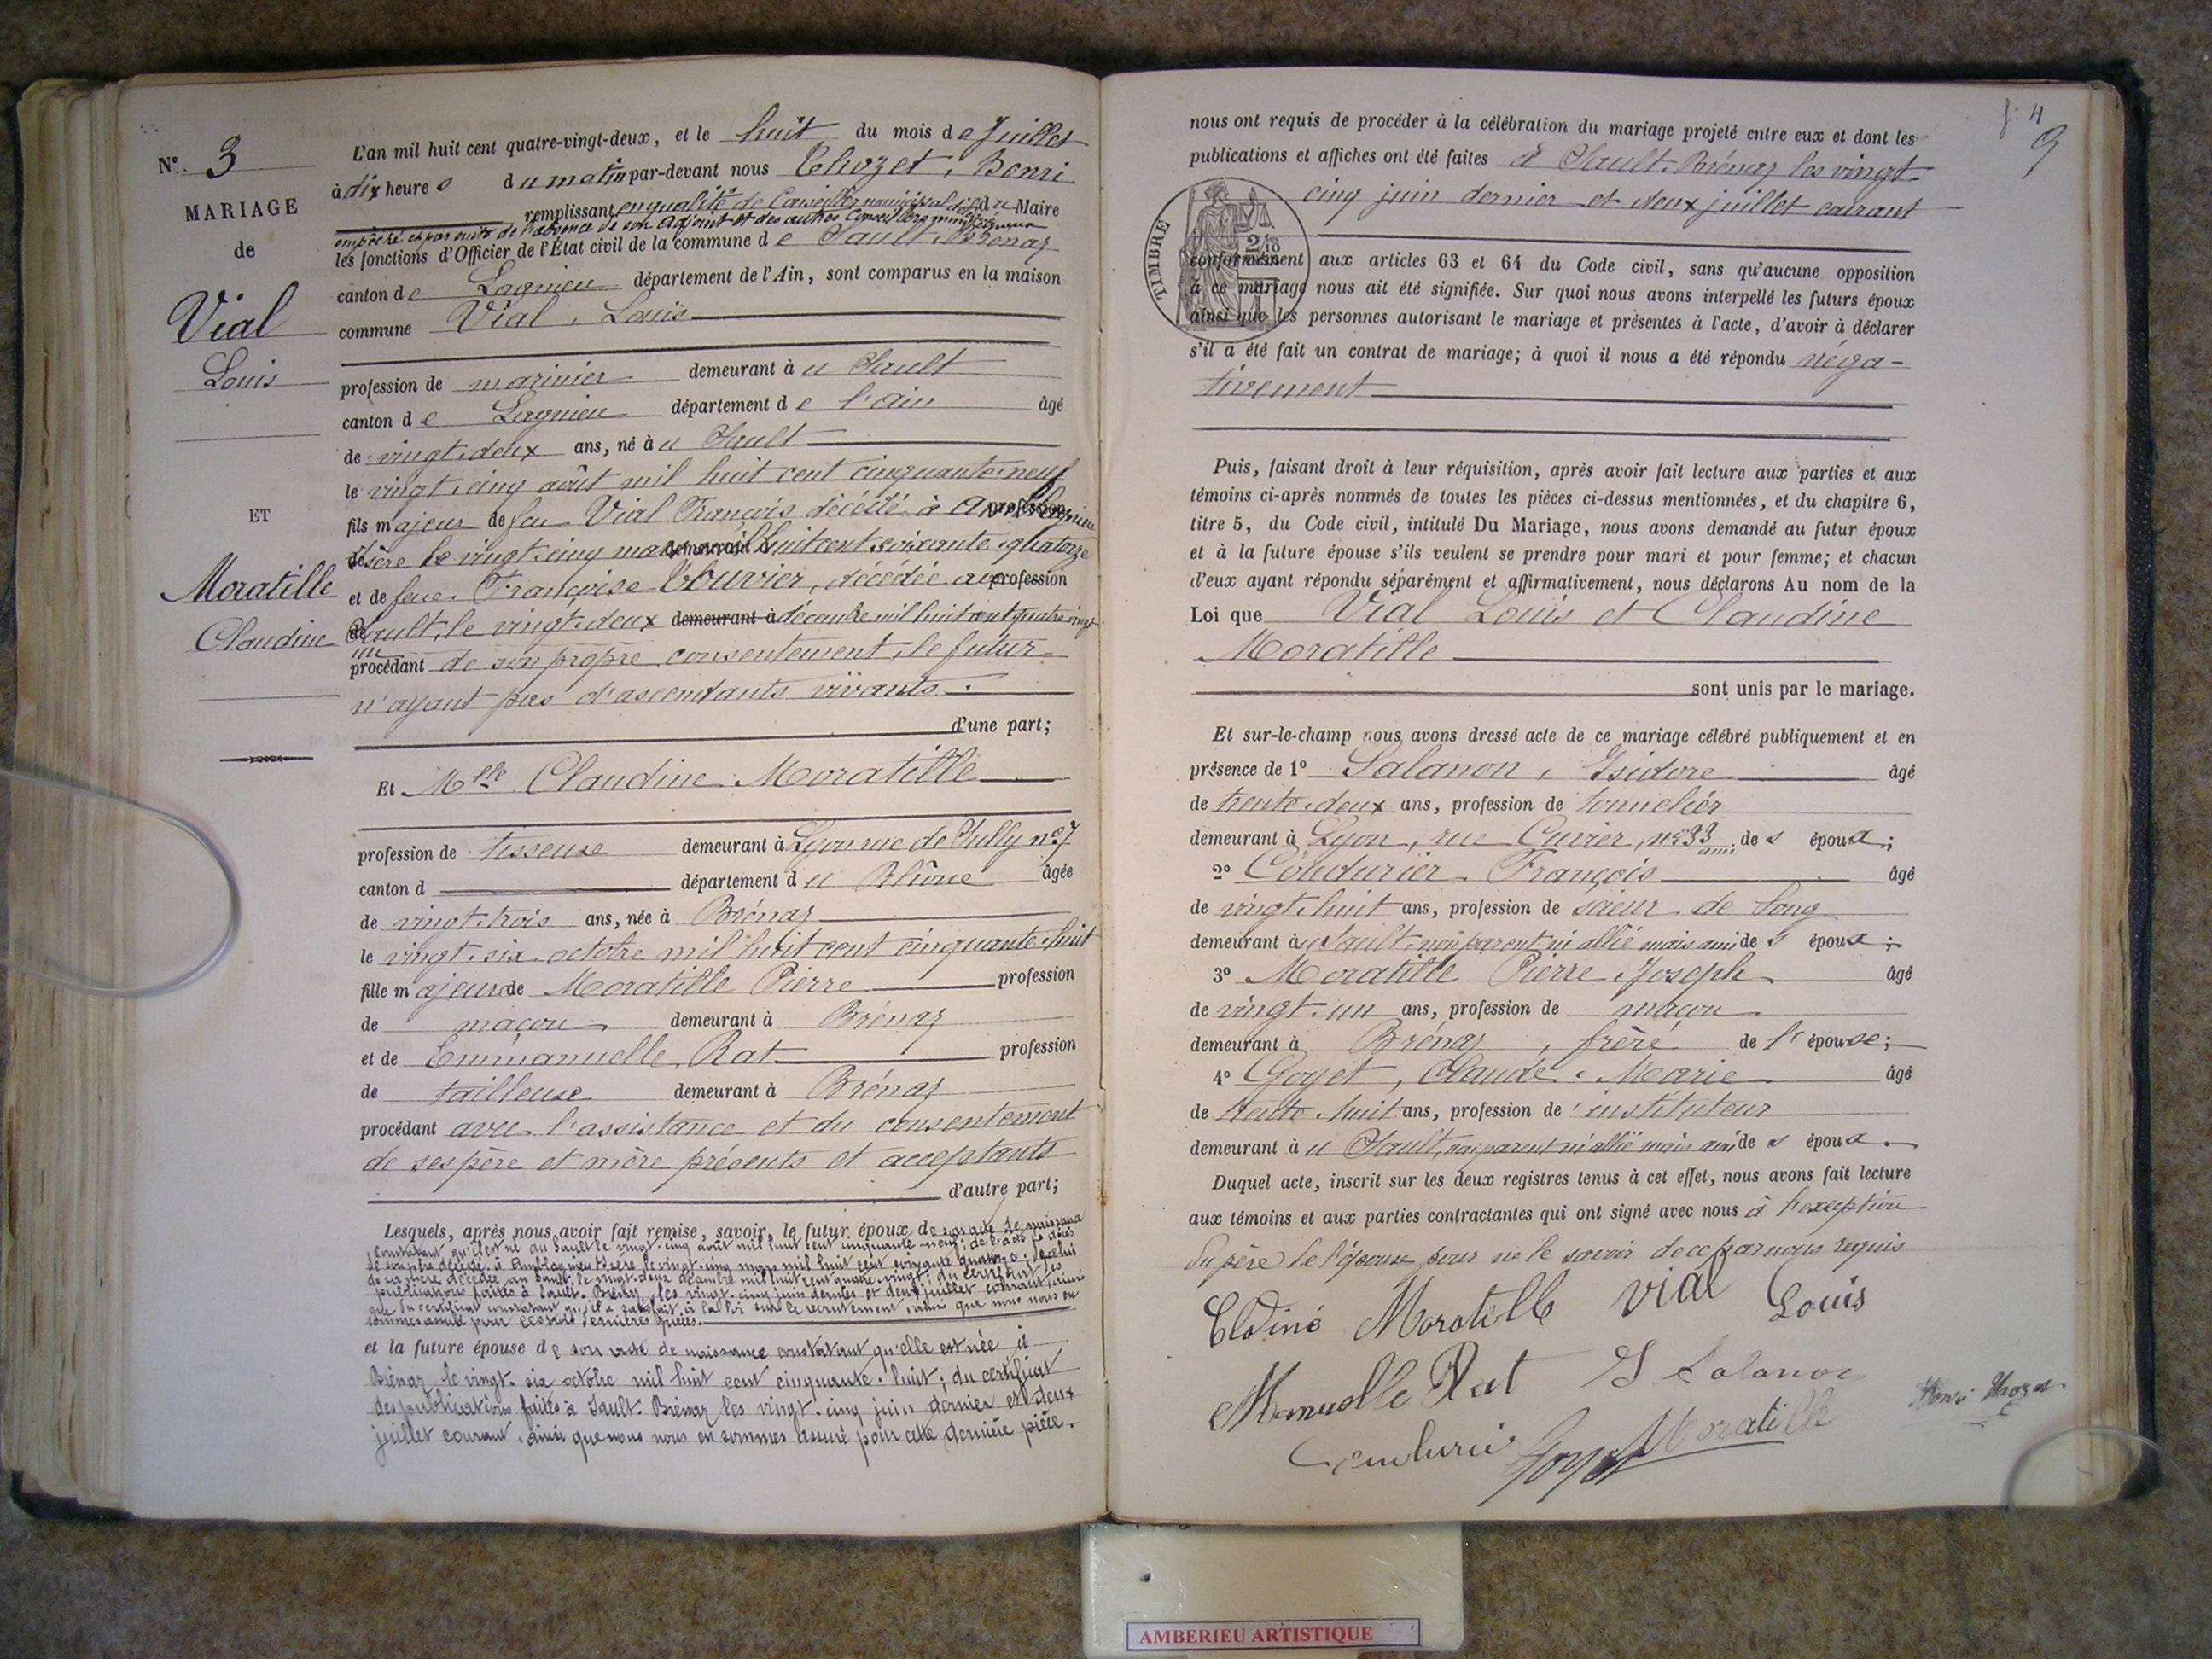 N° 3
MARIAGE
de
Vial
Louis
ET
Moratille
Claudine
L'an mil huit cent quatre-vingt-deux, et le huit du mois de Juillet
à dix heures du matin par-devant nous Thozet, Henri
remplissant en qualité de Conseiller municipal du Maire
empêché et par suite de l'absence de son adjoint et des autres Conseillers
les fonctions d'Officier de l'État civil de la commune de Sault-Brénaz
canton de Lagnieu département de l'Ain, sont comparus en la maison
commune Vial, Louis
profession de marinier demeurant à u Sault
canton de Lagnieu département de l'ain âgé
de vingt-deux ans, né à u Sault
le vingt-cinq août mil huit cent cinquante-neuf
fils majeur de feu Vial François décédé à profession
de Isère le vingt-cinq demeurant huit cent soixante-quatorze
et de feue Françoise Bouvier, décédée au profession
Sault, le vingt-deux demeurant à décembre mil huit cent quatre vingt
un
procédant de son propre consentement, le futur
n'ayant pas d'ascendants vivants.
d'une part;
Et Mlle Claudine Moratille
profession de tisseuse demeurant à Lyon rue de Sully n°7
canton d département du Rhône âgée
de vingt-trois ans, née à Brénaz
le vingt-six octobre mil huit cent cinquante-huit
fille majeure de Moratille Pierre profession
de maçon demeurant à Brénaz
et de Emmanuelle Rat profession
de tailleuse demeurant à Brénaz
procédant avec l'assistance et du consentement
de ses père et mère présents et acceptants
d'autre part;
Lesquels, après nous avoir fait remise, savoir, le futur époux de son acte de naissance
constatant qu'il est né au Sault le vingt-cinq août mil huit cent cinquante-neuf; de l'acte de décès
de son père décédé à Isère le vingt-cinq mil huit cent soixante quatorze; de celui
de sa mère décédée au Sault le vingt-deux décembre mil huit cent quatre-vingt; du certificat des
publications faites à Sault-Brénaz, les vingt-cinq juin dernier et deux juillet courant, ainsi
que du certificat constatant qu'il a satisfait à la loi sur le recrutement, ainsi que nous nous en
sommes assuré pour ces dernières pièces.
et la future épouse de son acte de naissance constatant qu'elle est née à
Brénaz le vingt-six octobre mil huit cent cinquante-huit; du certificat
des publications faites à Sault-Brénaz les vingt-cinq juin dernier et deux
juillet courant, ainsi que nous nous en sommes assuré pour cette dernière pièce.
f: 4
3
nous ont requis de procéder à la célébration du mariage projeté entre eux et dont les
publications et affiches ont été faites à Sault-Brénaz les vingt-
cinq juin dernier et deux juillet courant
TIMBRE
conformément aux articles 63 et 64 du Code civil, sans qu'aucune opposition
à ce mariage nous ait été signifiée. Sur quoi nous avons interpellé les futurs époux
ainsi que les personnes autorisant le mariage et présentes à l'acte, d'avoir à déclarer
s'il a été fait un contrat de mariage; à quoi il nous a été répondu néga-
tivement
Puis, faisant droit à leur réquisition, après avoir fait lecture aux parties et aux
témoins ci-après nommés de toutes les pièces ci-dessus mentionnées, et du chapitre 6,
titre 5, du Code civil, intitulé Du Mariage, nous avons demandé au futur époux
et à la future épouse s'ils veulent se prendre pour mari et pour femme; et chacun
d'eux ayant répondu séparément et affirmativement, nous déclarons Au nom de la
Loi que Vial Louis et Claudine
Moratille
sont unis par le mariage.
Et sur-le-champ nous avons dressé acte de ce mariage célébré publiquement et en
présence de 1° Salanon, Isidore âgé
de trente-deux ans, profession de tonnelier
demeurant à Lyon, rue Cuvier, n°33 ami des époux;
2° Coudurier François âgé
de vingt-huit ans, profession de scieur de long
demeurant à Sault, non parent ni allié mais ami des époux;
3° Moratille Pierre Joseph âgé
de vingt-un ans, profession de maçon
demeurant à Brénaz, frère de l'épouse;
4° Goyet, Claude-Marie âgé
de trente-huit ans, profession de instituteur
demeurant à u Sault, non parent ni allié mais ami des époux.
Duquel acte, inscrit sur les deux registres tenus à cet effet, nous avons fait lecture
aux témoins et aux parties contractantes qui ont signé avec nous à l'exception
du père de l'épouse pour ne le savoir de ce par nous requis
Clodine Moratille Vial Louis
Manuelle Rat I Salanon
Henri Thozet
Goyet Moratille
AMBERIEU ARTISTIQUE